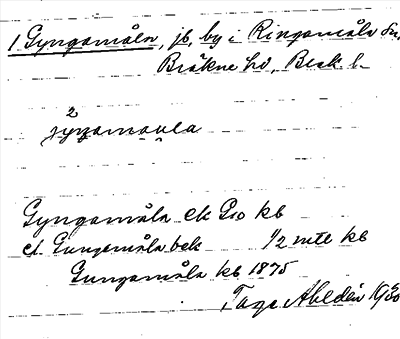 1 Gyngamåla, jb, by i Ringamåla sn,
Bräkne hd, Blek. l.
2
jyŋamoula
Gyngamåla ek G10 kb
cf. Gungemåla bek 1/2 mtl kb
Gungamåla kb 1875
Tage Ahldén 1930